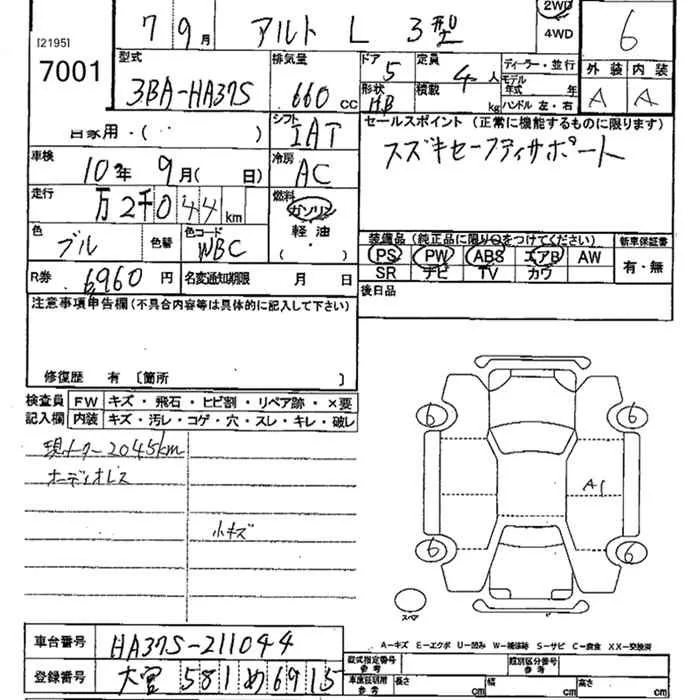 [21951]
7001
7 9月 アルト L 3型
2WD
4WD
6
外装 内装
A A
型式
3BA-HA37S
排気量
660 cc
ドア 5
形状 H.B
定員 4人
積載 kg
ディーラー・並行
モデル年式 年
ハンドル 左・右
自家用・( )
シフト
IAT
セールスポイント (正常に機能するものに限ります)
スズキセーフティサポート
車検
10年 9月( 日)
冷房
AC
走行
万2千044km
燃料
ガソリン
軽油
( ・ )
色 ブル
色替
色コード
WBC
装備品 (純正品に限り○をつけてください)
PS PW ABS エアB AW
SR ナビ TV カワ
新車保証書
有・無
R券 6960円
名変通知期限 月 日
後日品
注意事項申告欄(不具合内容等は具体的に記入して下さい)
修復歴 有 〔箇所 〕
検査員記入欄
FW キズ・飛石・ヒビ割・リペア跡・×要
内装 キズ・汚レ・コゲ・穴・スレ・キレ・破レ
現メーター2045km
オーディオレス
小キズ
6 6
A1
6 6
スペア
A-キズ E-エクボ U-凹み W-補修跡 S-サビ C-腐食 XX-交換済
車台番号 HA37S-211044
登録番号 大宮 581 め 6915
型式指定番号 参考
類別区分番号 参考
車庫証明用 参考
長さ cm
幅 cm
高さ cm